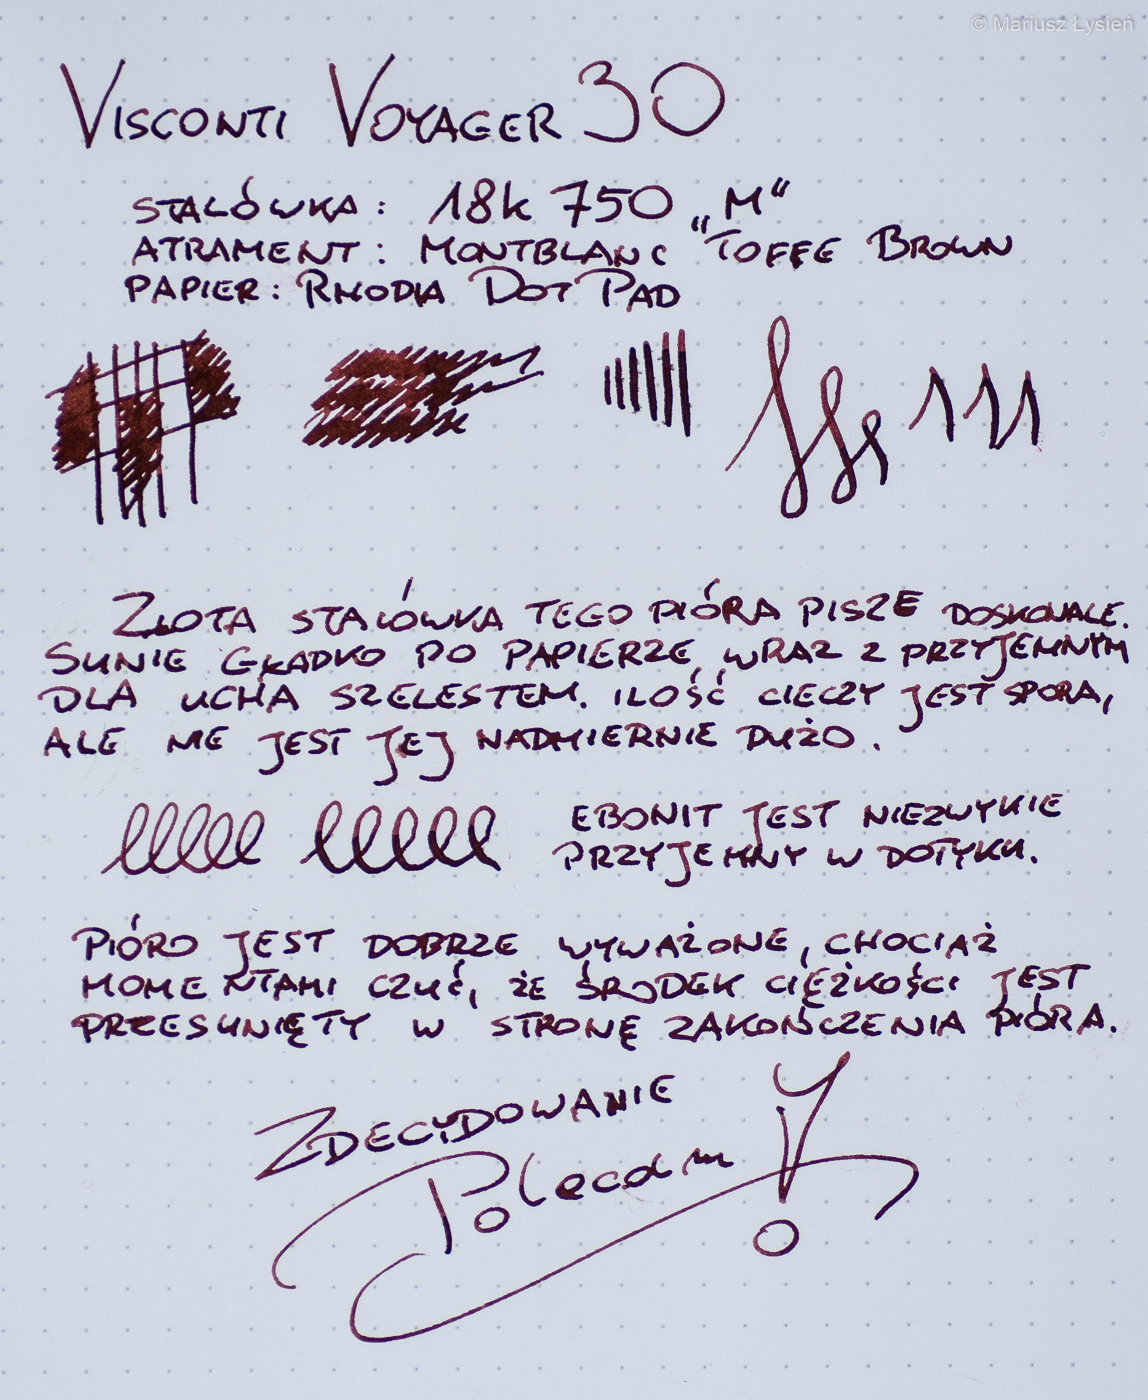 © Mariusz Łysień
VISCONTI VOYAGER 30
STALÓWKA: 18K 750 „M“
ATRAMENT: MONTBLANC "TOFFEE BROWN
PAPIER: RHODIA DOT PAD
ZŁOTA STALÓWKA TEGO PIÓRA PISZE DOSKONALE.
SUNIE GŁADKO PO PAPIERZE, WRAZ Z PRZYJEMNYM
DLA UCHA SZELESTEM. ILOŚĆ CIECZY JEST SPORA,
ALE NIE JEST JEJ NADMIERNIE DUŻO.
EBONIT JEST NIEZWYKLE
PRZYJEMNY W DOTYKU.
PIÓRO JEST DOBRZE WYWAŻONE, CHOCIAŻ
MOMENTAMI CZUĆ, ŻE ŚRODEK CIĘŻKOŚCI JEST
PRZESUNIĘTY W STRONĘ ZAKOŃCZENIA PIÓRA.
ZDECYDOWANIE
Polecam!